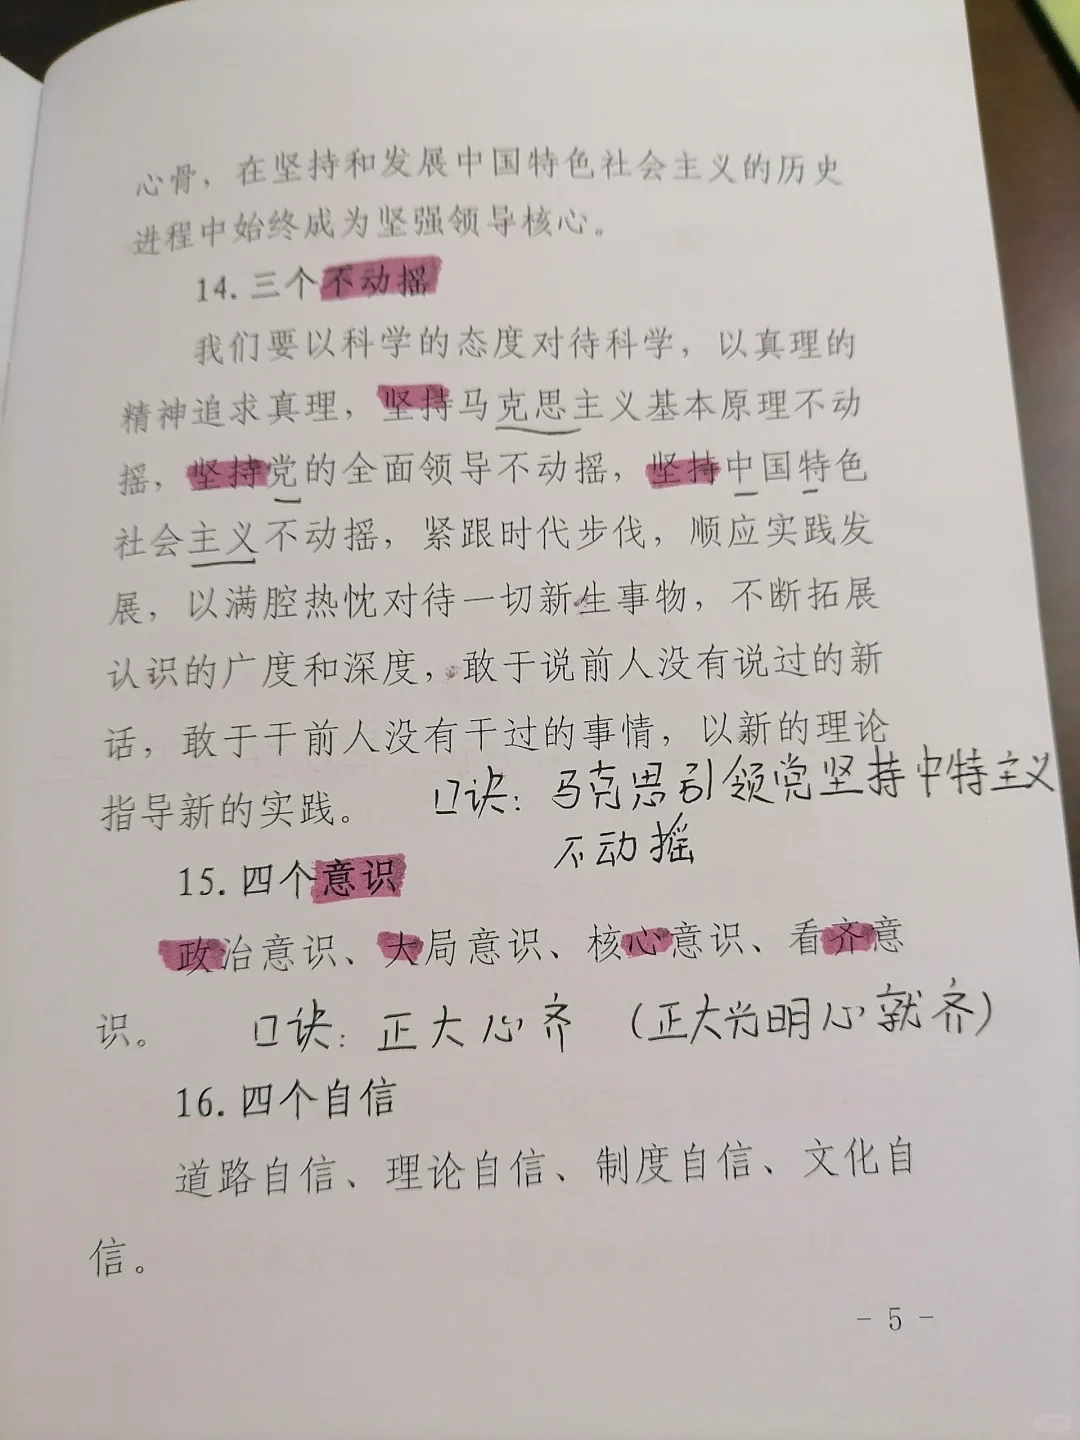 心骨，在坚持和发展中国特色社会主义的历史
进程中始终成为坚强领导核心。
14.三个不动摇
我们要以科学的态度对待科学，以真理的
精神追求真理，坚持马克思主义基本原理不动
摇，坚持党的全面领导不动摇，坚持中国特色
社会主义不动摇，紧跟时代步伐，顺应实践发
展，以满腔热忱对待一切新生事物，不断拓展
认识的广度和深度，敢于说前人没有说过的新
话，敢于干前人没有干过的事情，以新的理论
指导新的实践。
口诀：马克思引领党坚持中特主义
不动摇
15.四个意识
政治意识、大局意识、核心意识、看齐意
识。
口诀：正大心齐（正大光明心就齐）
16.四个自信
道路自信、理论自信、制度自信、文化自
信。
- 5 -